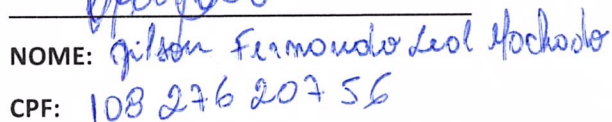 NOME: Gilson Fernando Leal Machado
CPF: 108 276 207 56